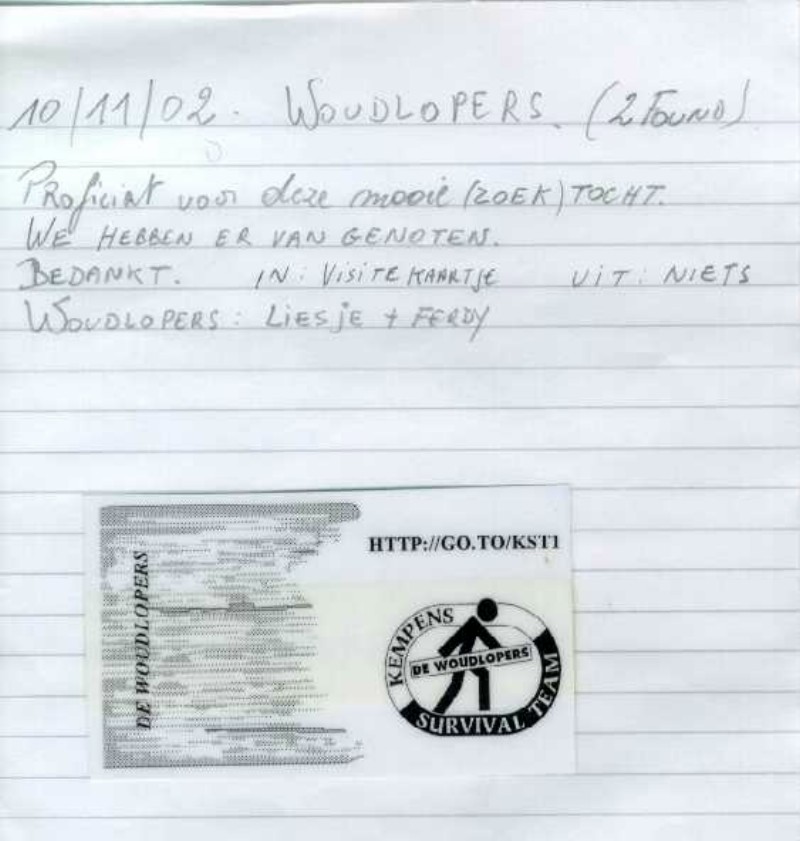 10/11/02. WOUDLOPERS. (2 FOUND)
PROficiat voor deze mooie (ZOEK) TOCHT.
WE HEBBEN ER VAN GENOTEN.
BEDANKT. IN: VISITEKAARTJE UIT: NIETS
WOUDLOPERS: LIESJE + FERDY
HTTP://GO.TO/KST1
DE WOUDLOPERS
KEMPENS
DE WOUDLOPERS
SURVIVAL TEAM